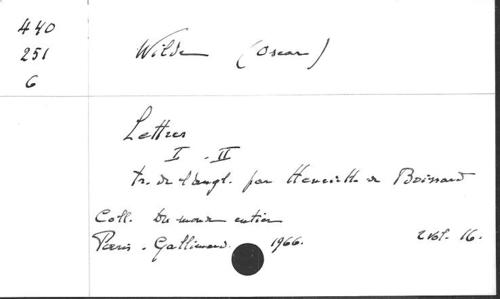 440
251
6
Wilde (Oscar)
Lettres
I - II
tr. de l'angl. par Henriette de Boissard
Coll. Du monde entier
Paris. Gallimard. 1966. 2 vol. 16.